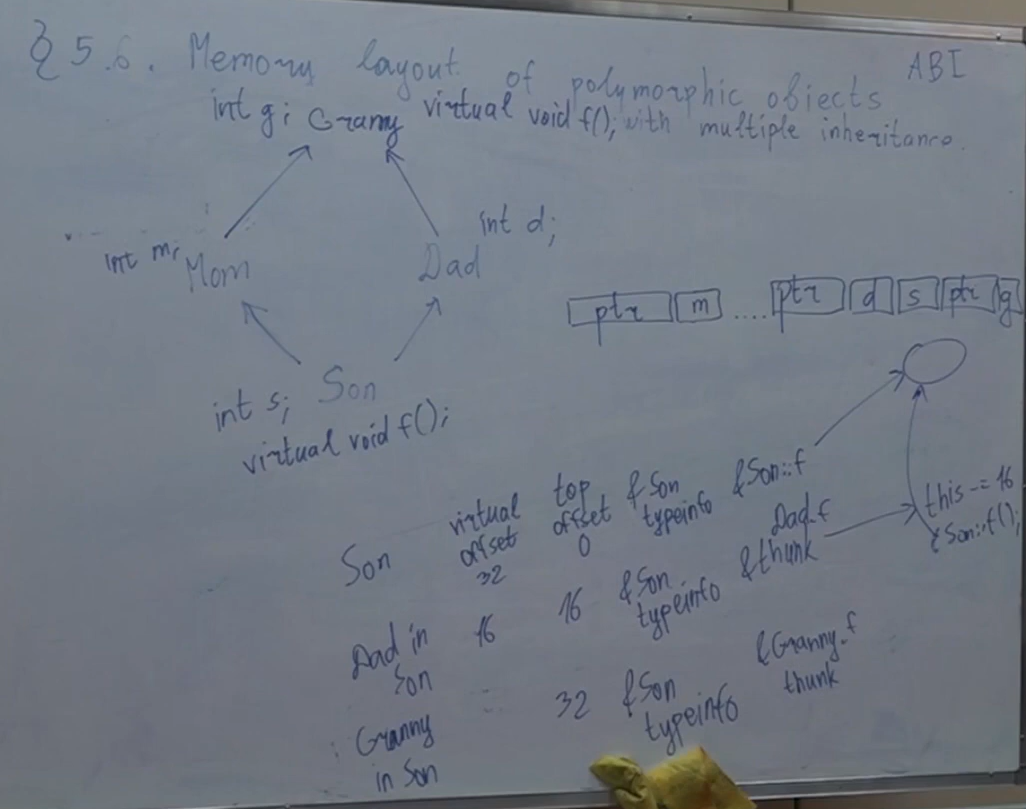 § 5.6. Memory layout of polymorphic objects
ABI
int g; Granny virtual void f(); with multiple inheritance.
int m; Mom
Dad int d;
ptr m .... ptr d s ptr g
int s; Son
virtual void f();
Son virtual offset 32 top offset 0 &Son typeinfo &Son::f
Dad in Son 16 16 &Son typeinfo &Dad.f thunk
this -= 16
Son::f();
Granny in Son 32 &Son typeinfo &Granny.f thunk